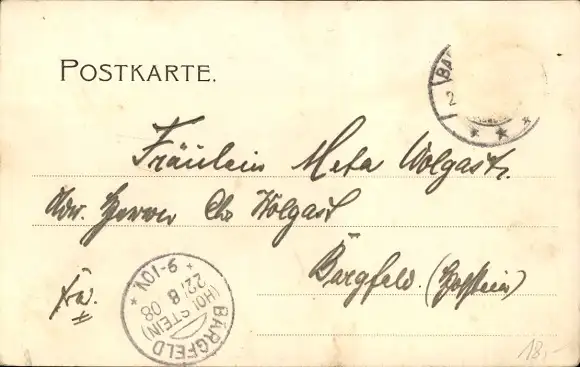 POSTKARTE.
BA
2
Fräulein Meta Wolgast.
Adr. Herrn Chr Wolgast
Bargfeld. (Holstein)
frei.
* 9-10V. *
22/8 08
(HOLSTEIN)
BARGFELD
18,-